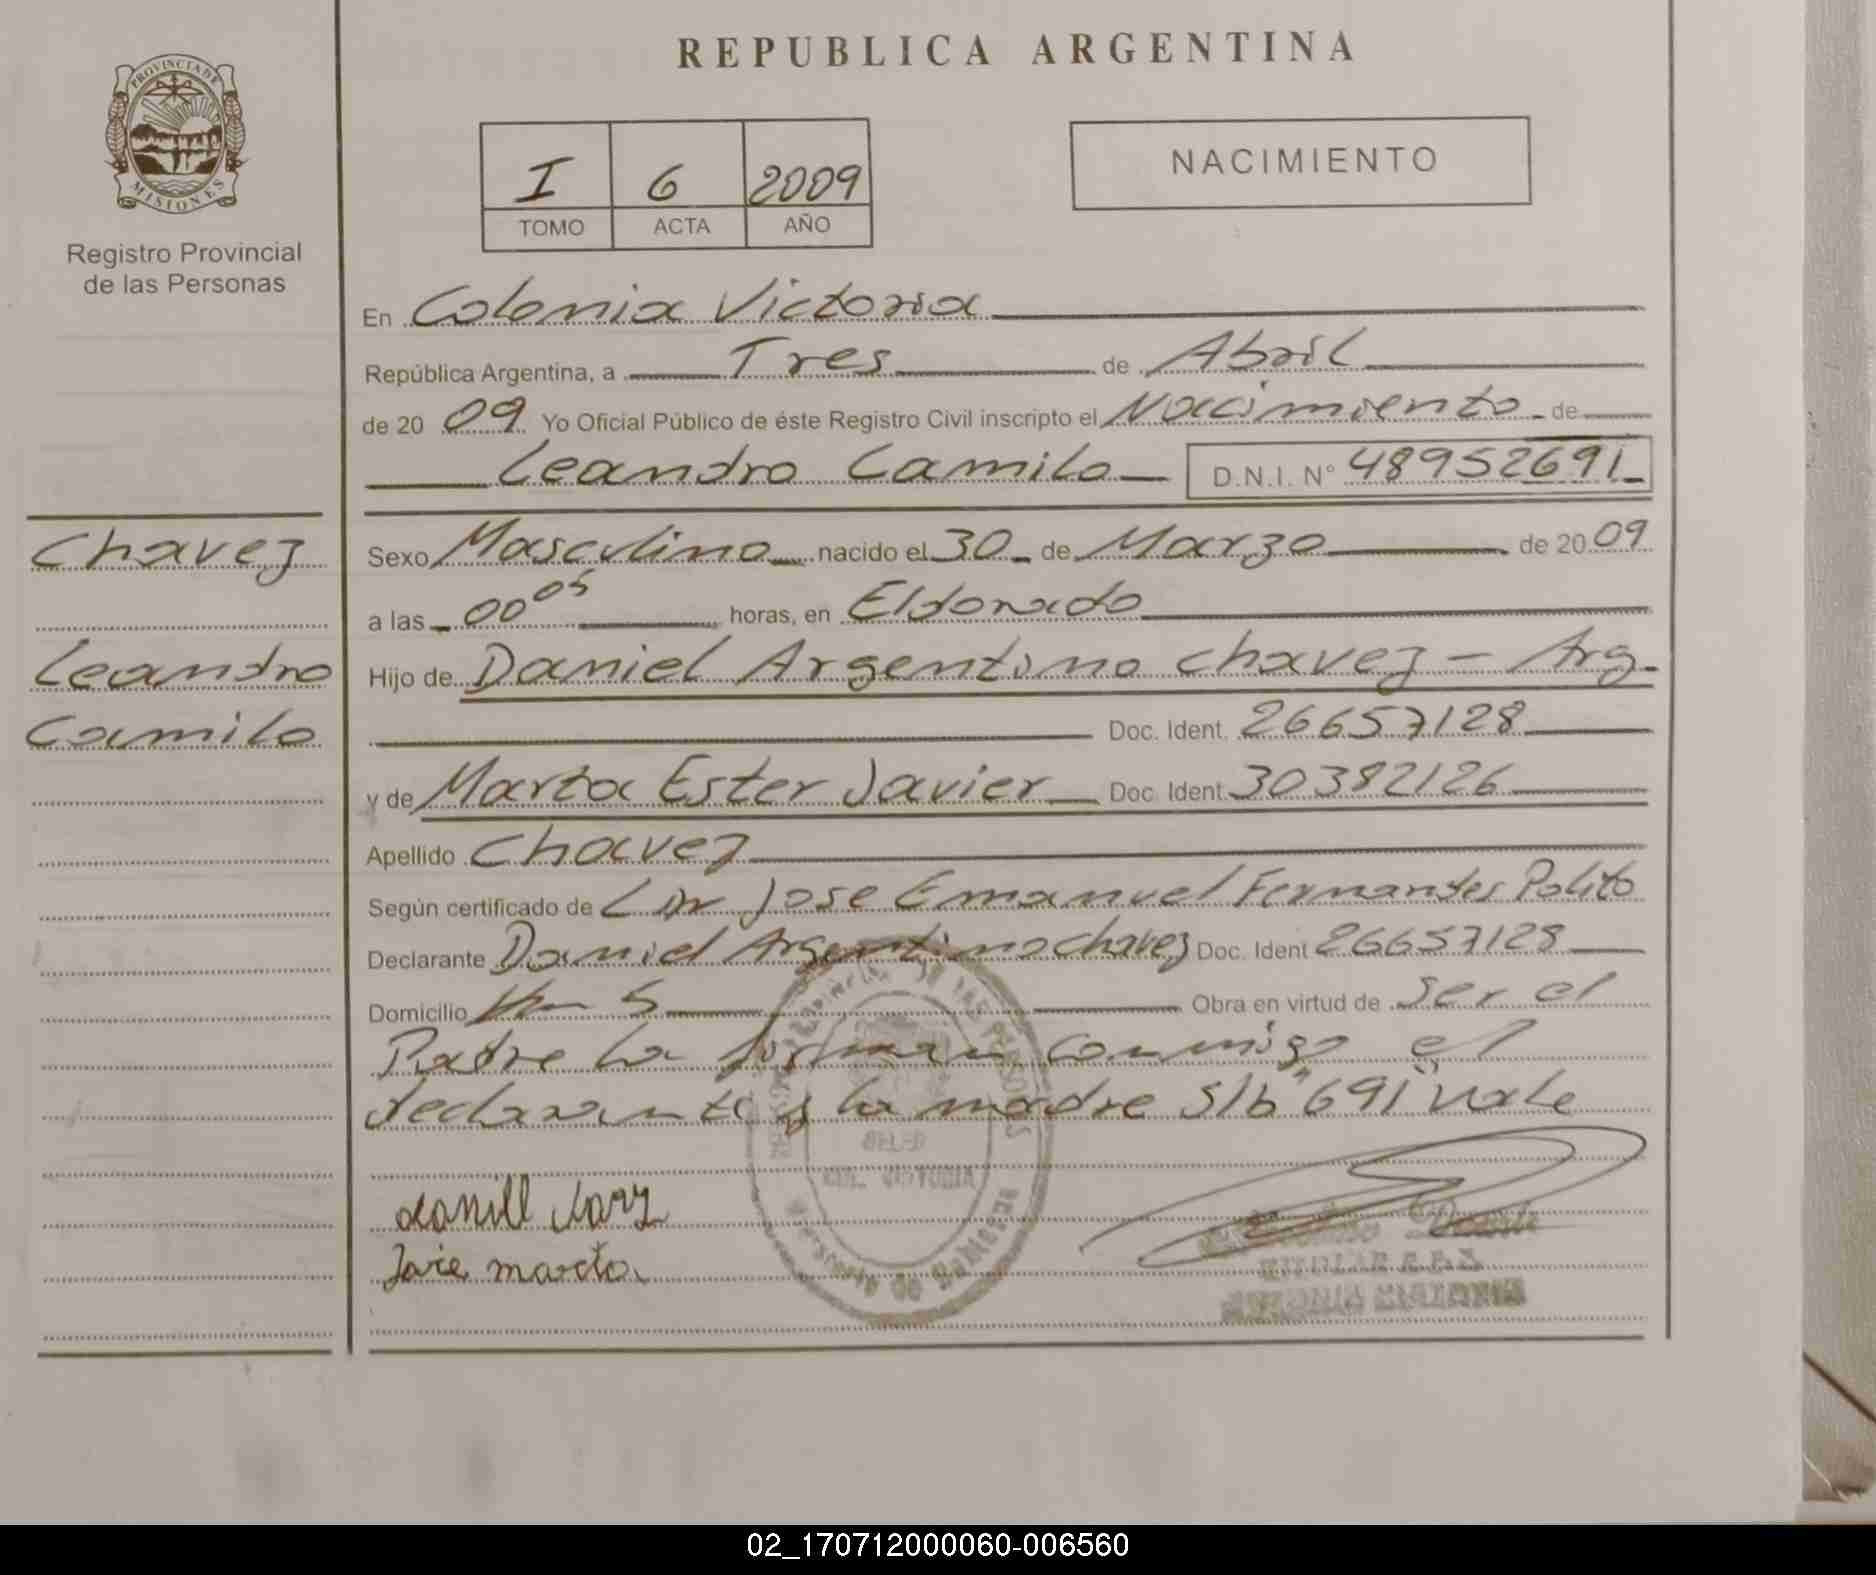 REPUBLICA ARGENTINA
PROVINCIA DE
MISIONES
Registro Provincial
de las Personas
I 6 2009
TOMO ACTA AÑO
NACIMIENTO
En Colonia Victoria
República Argentina, a Tres de Abril
de 20 09 Yo Oficial Público de éste Registro Civil inscripto el Nacimiento de
Leandro Camilo D.N.I. Nº 48952691
Chavez
Leandro
Camilo
Sexo Masculino nacido el 30 de Marzo de 20 09
a las 00 05 horas, en Eldorado
Hijo de Daniel Argentino Chavez - Arg.
Doc. Ident. 26657128
y de Marta Ester Javier Doc. Ident. 30382126
Apellido Chavez
Según certificado de Jose Emanuel Fernandes Polito
Declarante Daniel Argentino Chavez Doc. Ident 26657128
Domicilio Km 5 Obra en virtud de ser el
Padre la firman conmigo el
declarante y la madre S/b "691" vale
Javie marta
02_170712000060-006560